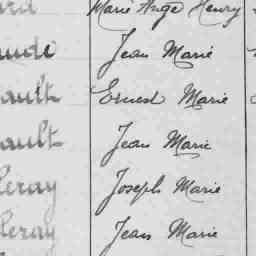 ard Marie Ange Henry
aude Jean Marie
ault Ernest Marie
ault Jean Marie
leray Joseph Marie
leray Jean Marie